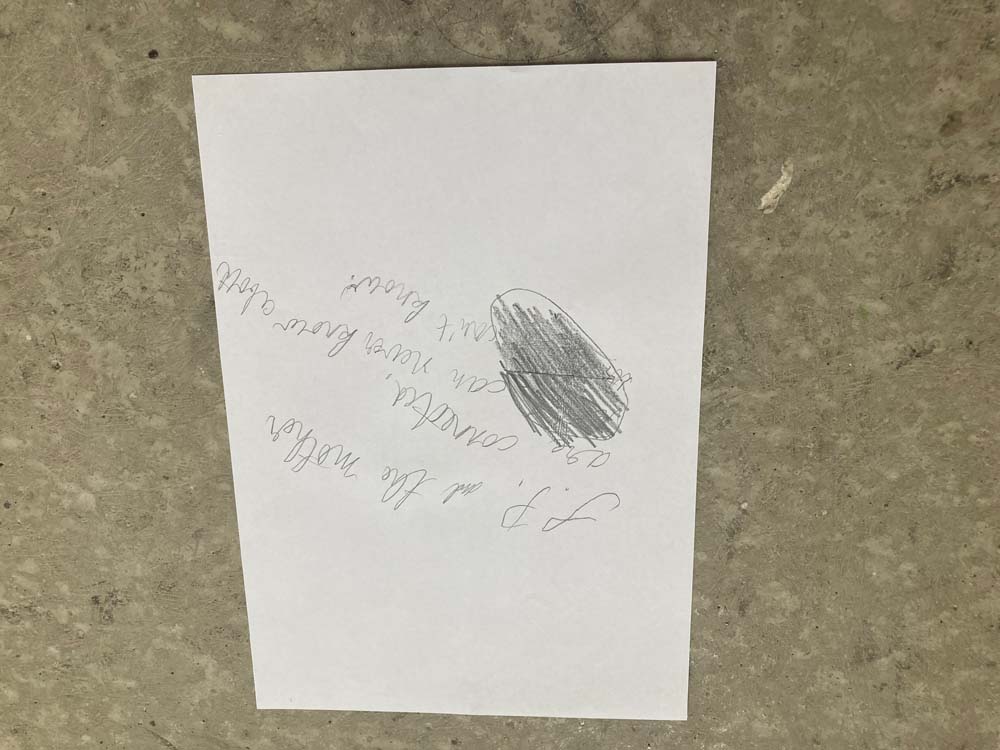 J.P. and the mother
are connected,
can never know about
can't know!